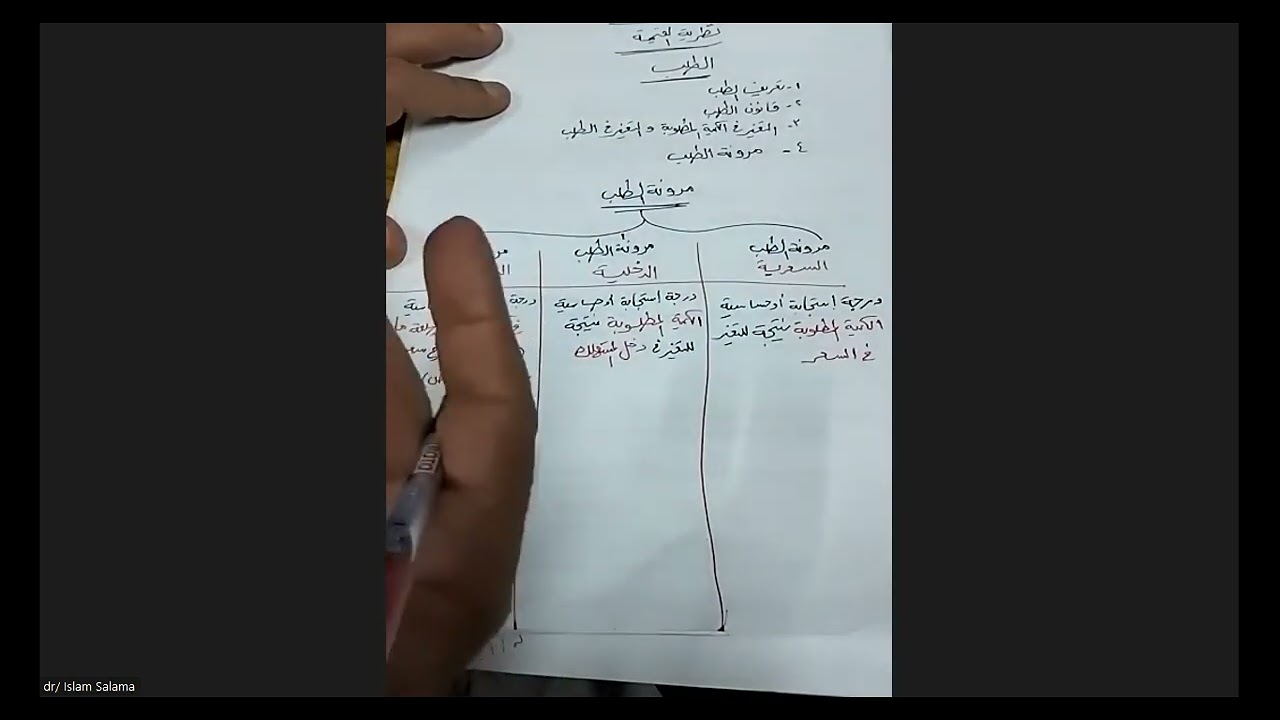 نظرية القيمة
الطلب
١- تعريف الطلب
٢- قانون الطلب
٣- التغير في الكمية المطلوبة و التغير في الطلب
٤- مرونة الطلب
مرونة الطلب
مرونة الطلب
السعرية
درجة إستجابة أو حساسية
الكمية المطلوبة نتيجة للتغير
في السعر
مرونة الطلب
الدخلية
درجة إستجابة أو حساسية
الكمية المطلوبة نتيجة
للتغير في دخل المستهلك
درجة
dr/ Islam Salama